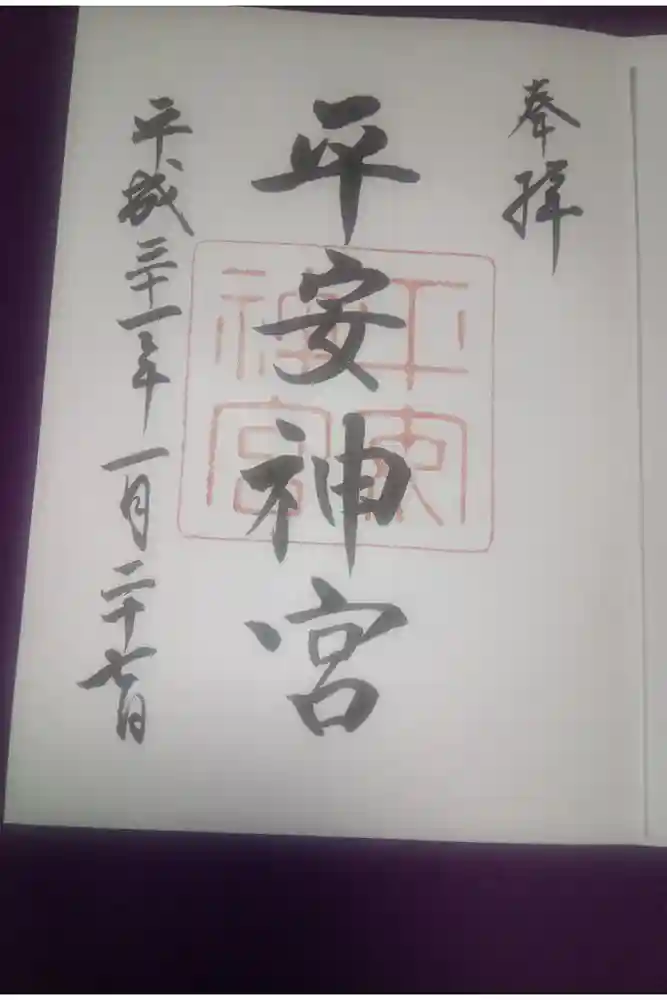 奉拝
平安神宮
平安神宮
平成三十一年一月二十七日